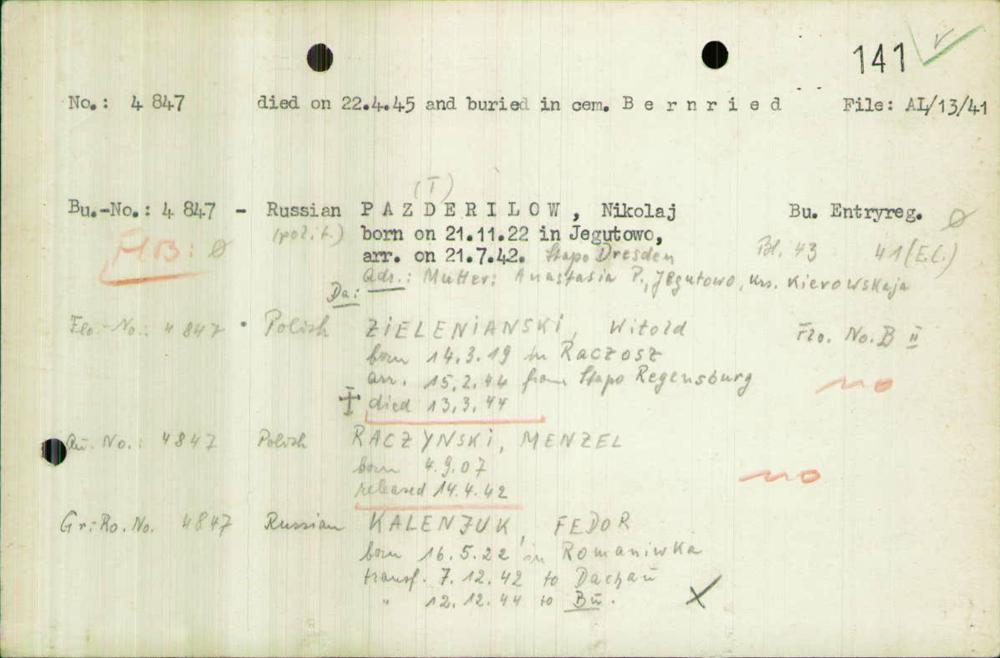 141
No.: 4 847 died on 22.4.45 and buried in cem. B e r n r i e d File: AL/13/41
(I)
Bu.-No.: 4 847 - Russian P A Z D E R I L O W , Nikolaj Bu. Entryreg. Ø
(polit.) born on 21.11.22 in Jegutowo,
FloB: Ø arr. on 21.7.42. Stapo Dresden Bl. 43 41 (E.C.)
Da: Adr.: Mutter: Anastasia P., Jegutowo, Krs. Kierowskaja
Flo.-No.: 4 847 Polish ZIELENIANSKI, Witold Flo. No. B II
born 14.3.19 in Raczosz
arr. 15.2.44 from Stapo Regensburg no
† died 13.3.44
Au. No.: 4847 Polish RACZYNSKI, MENZEL
born 4.9.07 no
released 14.4.42
Gr.-Ro. No. 4847 Russian KALENJUK, FEDOR
born 16.5.22 in Romaniwka
transf. 7.12.42 to Dachau
" 12.12.44 to Bu. X